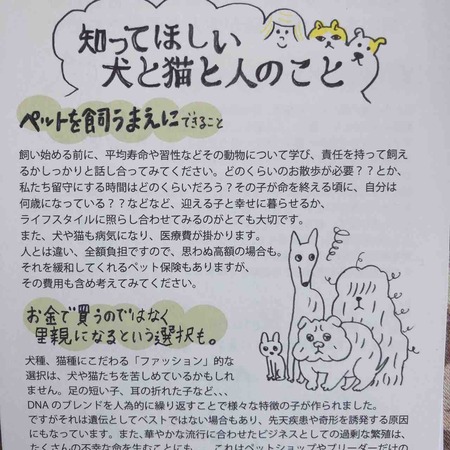 知ってほしい
犬と猫と人のこと
ペットを飼うまえにできること
飼い始める前に、平均寿命や習性などその動物について学び、責任を持って飼え
るかしっかりと話し合ってみてください。どのくらいのお散歩が必要？？とか、
私たち留守にする時間はどのくらいだろう？その子が命を終える頃に、自分は
何歳になっている？？などなど、迎える子と幸せに暮らせるか、
ライフスタイルに照らし合わせてみるのがとても大切です。
また、犬や猫も病気になり、医療費が掛かります。
人とは違い、全額負担ですので、思わぬ高額の場合も。
それを緩和してくれるペット保険もありますが、
その費用も含め考えてみてください。
お金で買うのではなく
里親になるという選択も。
犬種、猫種にこだわる「ファッション」的な
選択は、犬や猫たちを苦しめているかもしれ
ません。足の短い子、耳の折れた子など、、、
DNAのブレンドを人為的に繰り返すことで様々な特徴の子が作られました。
ですがそれは遺伝としてベストではない場合もあり、先天疾患や奇形を誘発する原因
にもなっています。また、華やかな流行に合わせたビジネスとしての過剰な繁殖は、
たくさんの不幸な命を生むことにも、、、これはペットショップやブリーダーだけの